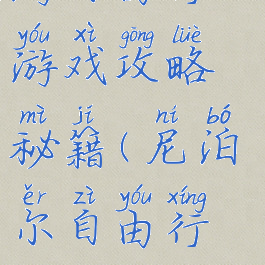 yóu xì gōng lüè
游戏攻略
mì jí ní bó
秘籍(尼泊
ěr zì yóu xíng
尔自由行